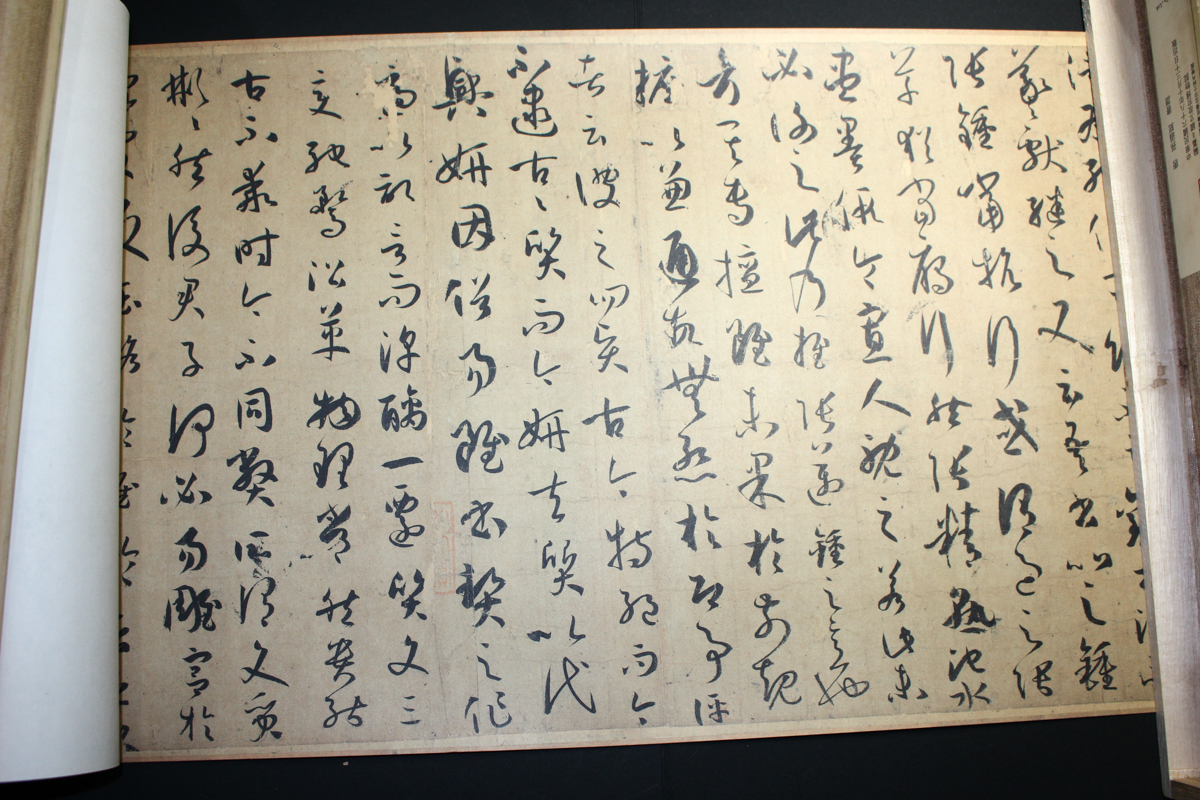 羲獻繼之又云吾書比之鍾
張鍾當抗行或謂過之張
草猶當鴈行然張精熟池水
盡墨假令寡人耽之若此未
必謝之此乃推張邁鍾之意也
考其專擅雖未果於前規
摭以兼通故無慚於即事評
者云彼之四賢古今特絕而今
不逮古古質而今妍夫質以代
興妍因俗易雖書契之作
適以記言而淳醨一遷質文三
變馳騖沿革物理常然貴能
古不乖時今不同弊所謂文質
彬彬然後君子何必易雕宮於